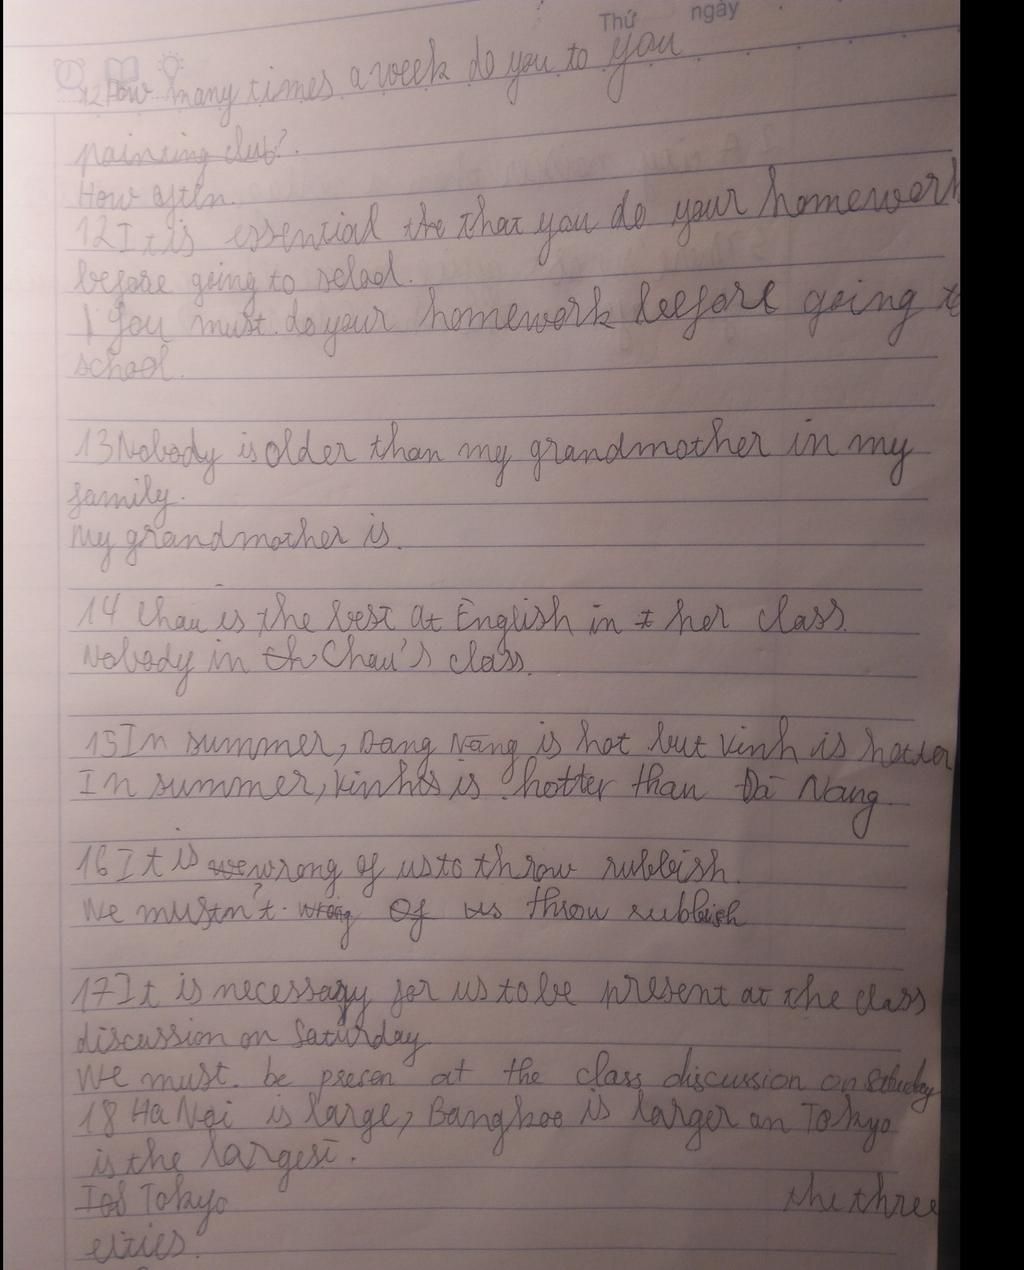 Thứ ngày
12 How many times a week do you to you
painting club?
How often.
12 It is essential the that you do your homework
before going to school.
1 You must do your homework beefore going to
school.
13 Nobody is older than my grandmother in my
family.
My grandmother is.
14 Chau is the best at English in t her class.
Nobody in th Chau's class.
15 In summer, Dang Nang is hot but Vinh is hotter
In summer, Vinh is is hotter than Đà Nang
16 It is we wrong of us to throw rubbish.
We mustn't wrong of us throw rubbish
17 It is necessary for us to be present at the class
discussion on Saturday
We must be presen at the class discussion on Satuday
18 Ha Nọi is large, Bangkoo is larger an Tokyo
is the largest.
Tokyo the three
cities.